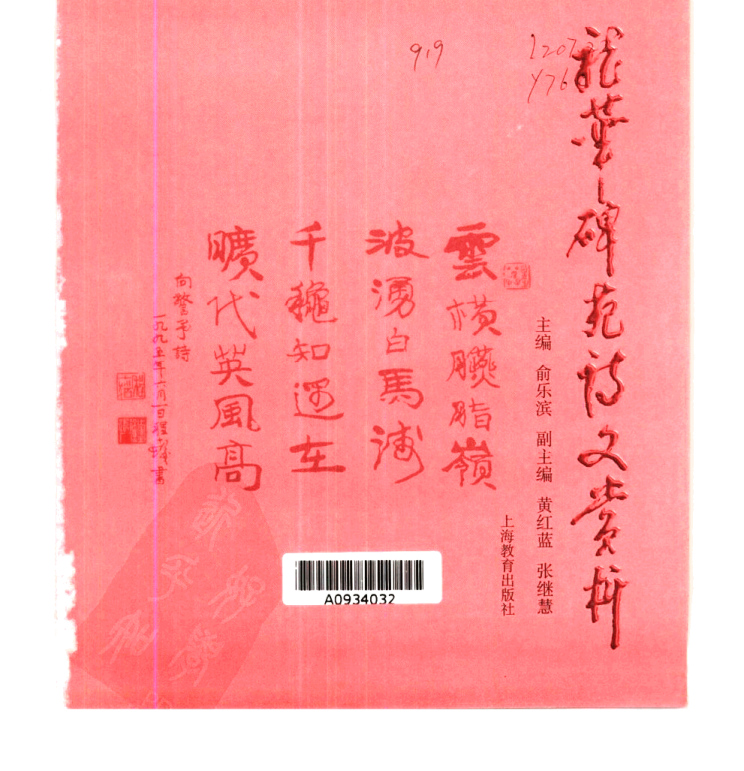 919
龍華碑苑诗文赏析
主编 俞乐滨 副主编 黄红蓝 张继慧
上海教育出版社
雲横臙脂嶺
波湧白馬涛
千龝知遇在
曠代英風高
向警予诗
一九九五年六月一日
A0934032